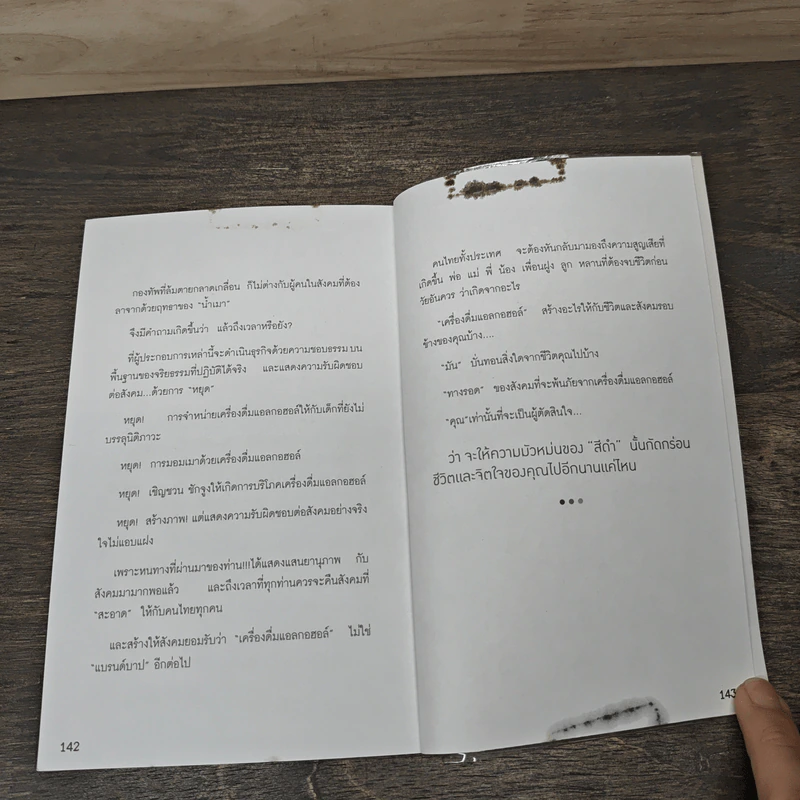 กองทัพที่ล้มตายกลาดเกลื่อน ก็ไม่ต่างกับผู้คนในสังคมที่ต้อง
ลาจากด้วยฤทธาของ “น้ำเมา”
จึงมีคำถามเกิดขึ้นว่า แล้วถึงเวลาหรือยัง?
ที่ผู้ประกอบการเหล่านี้จะดำเนินธุรกิจด้วยความชอบธรรม บน
พื้นฐานของจริยธรรมที่ปฏิบัติได้จริง และแสดงความรับผิดชอบ
ต่อสังคม...ด้วยการ “หยุด”
หยุด! การจำหน่ายเครื่องดื่มแอลกอฮอล์ให้กับเด็กที่ยังไม่
บรรลุนิติภาวะ
หยุด! การมอมเมาด้วยเครื่องดื่มแอลกอฮอล์
หยุด! เชิญชวน ชักจูงให้เกิดการบริโภคเครื่องดื่มแอลกอฮอล์
หยุด! สร้างภาพ! แต่แสดงความรับผิดชอบต่อสังคมอย่างจริง
ใจไม่แอบแฝง
เพราะหนทางที่ผ่านมาของท่าน!!!ได้แสดงแสนยานุภาพ กับ
สังคมมามากพอแล้ว และถึงเวลาที่ทุกท่านควรจะคืนสังคมที่
“สะอาด” ให้กับคนไทยทุกคน
และสร้างให้สังคมยอมรับว่า “เครื่องดื่มแอลกอฮอล์” ไม่ใช่
“แบรนด์บาป” อีกต่อไป
142
คนไทยทั้งประเทศ จะต้องหันกลับมามองถึงความสูญเสียที่
เกิดขึ้น พ่อ แม่ พี่ น้อง เพื่อนฝูง ลูก หลานที่ต้องจบชีวิตก่อน
วัยอันควร ว่าเกิดจากอะไร
“เครื่องดื่มแอลกอฮอล์” สร้างอะไรให้กับชีวิตและสังคมรอบ
ข้างของคุณบ้าง....
“มัน” บั่นทอนสิ่งใดจากชีวิตคุณไปบ้าง
“ทางรอด” ของสังคมที่จะพ้นภัยจากเครื่องดื่มแอลกอฮอล์
“คุณ”เท่านั้นที่จะเป็นผู้ตัดสินใจ...
ว่า จะให้ความมัวหม่นของ “สีดำ” นั้นกัดกร่อน
ชีวิตและจิตใจของคุณไปอีกนานแค่ไหน
143